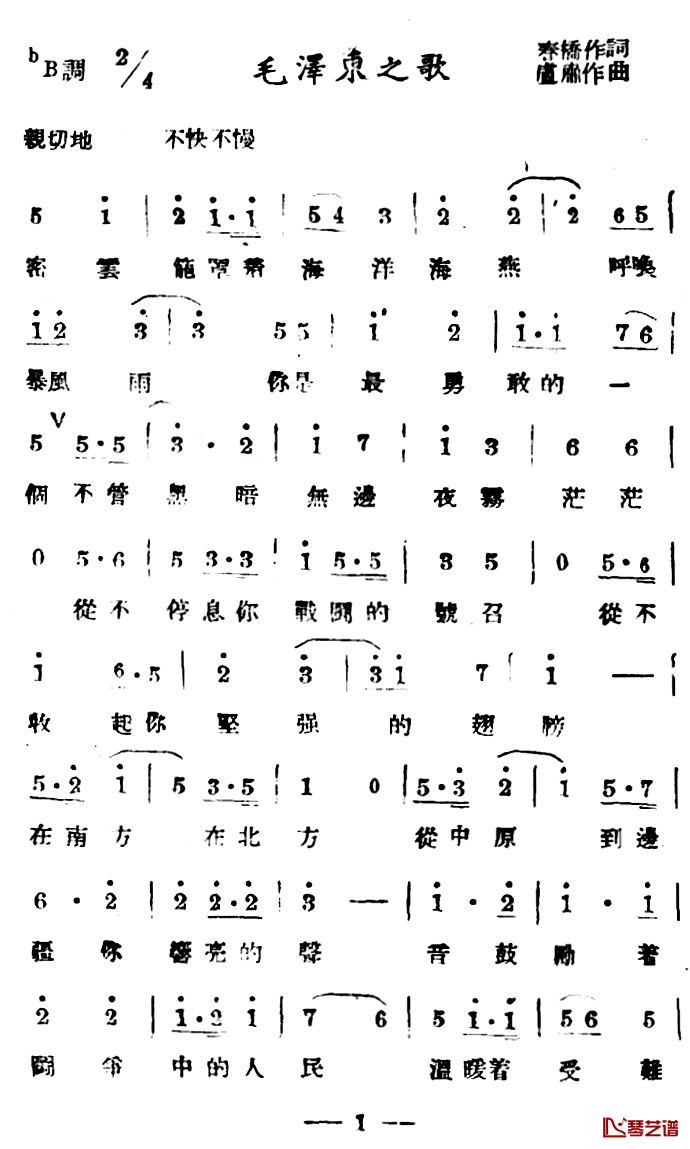 ᵇB調 2/4 毛澤東之歌 橋作詞
盧肅作曲
親切地 不快不慢
5 i | 2 i·i | 5 4 3 | 2 2 | 2 6 5 |
密雲籠罩着海洋海燕 呼喚
i 2 3 | 3 5 5 | i 2 | i·i 7 6 |
暴風雨 你是最勇敢的一
V
5 5·5 | 3·2 | i 7 | i 3 | 6 6 |
個不管黑暗無邊夜霧茫茫
0 5·6 | 5 3·3 | i 5·5 | 3 5 | 0 5·6 |
從不停息你戰鬭的號召 從不
i 6·5 | 2 3 | 3 i 7 | i — |
收起你堅强的翅膀
5·2 i | 5 3·5 | 1 0 | 5·3 2 | i 5·7 |
在南方 在北方 從中原 到邊
6·2 | 2 2·2 | 3 — | i·2 | i·i |
疆你響亮的聲 音鼓勵着
2 2 | i·2 i | 7 6 | 5 i·i | 5 6 5
鬭爭中的人民 溫暖着受難
— 1 —
琴艺谱